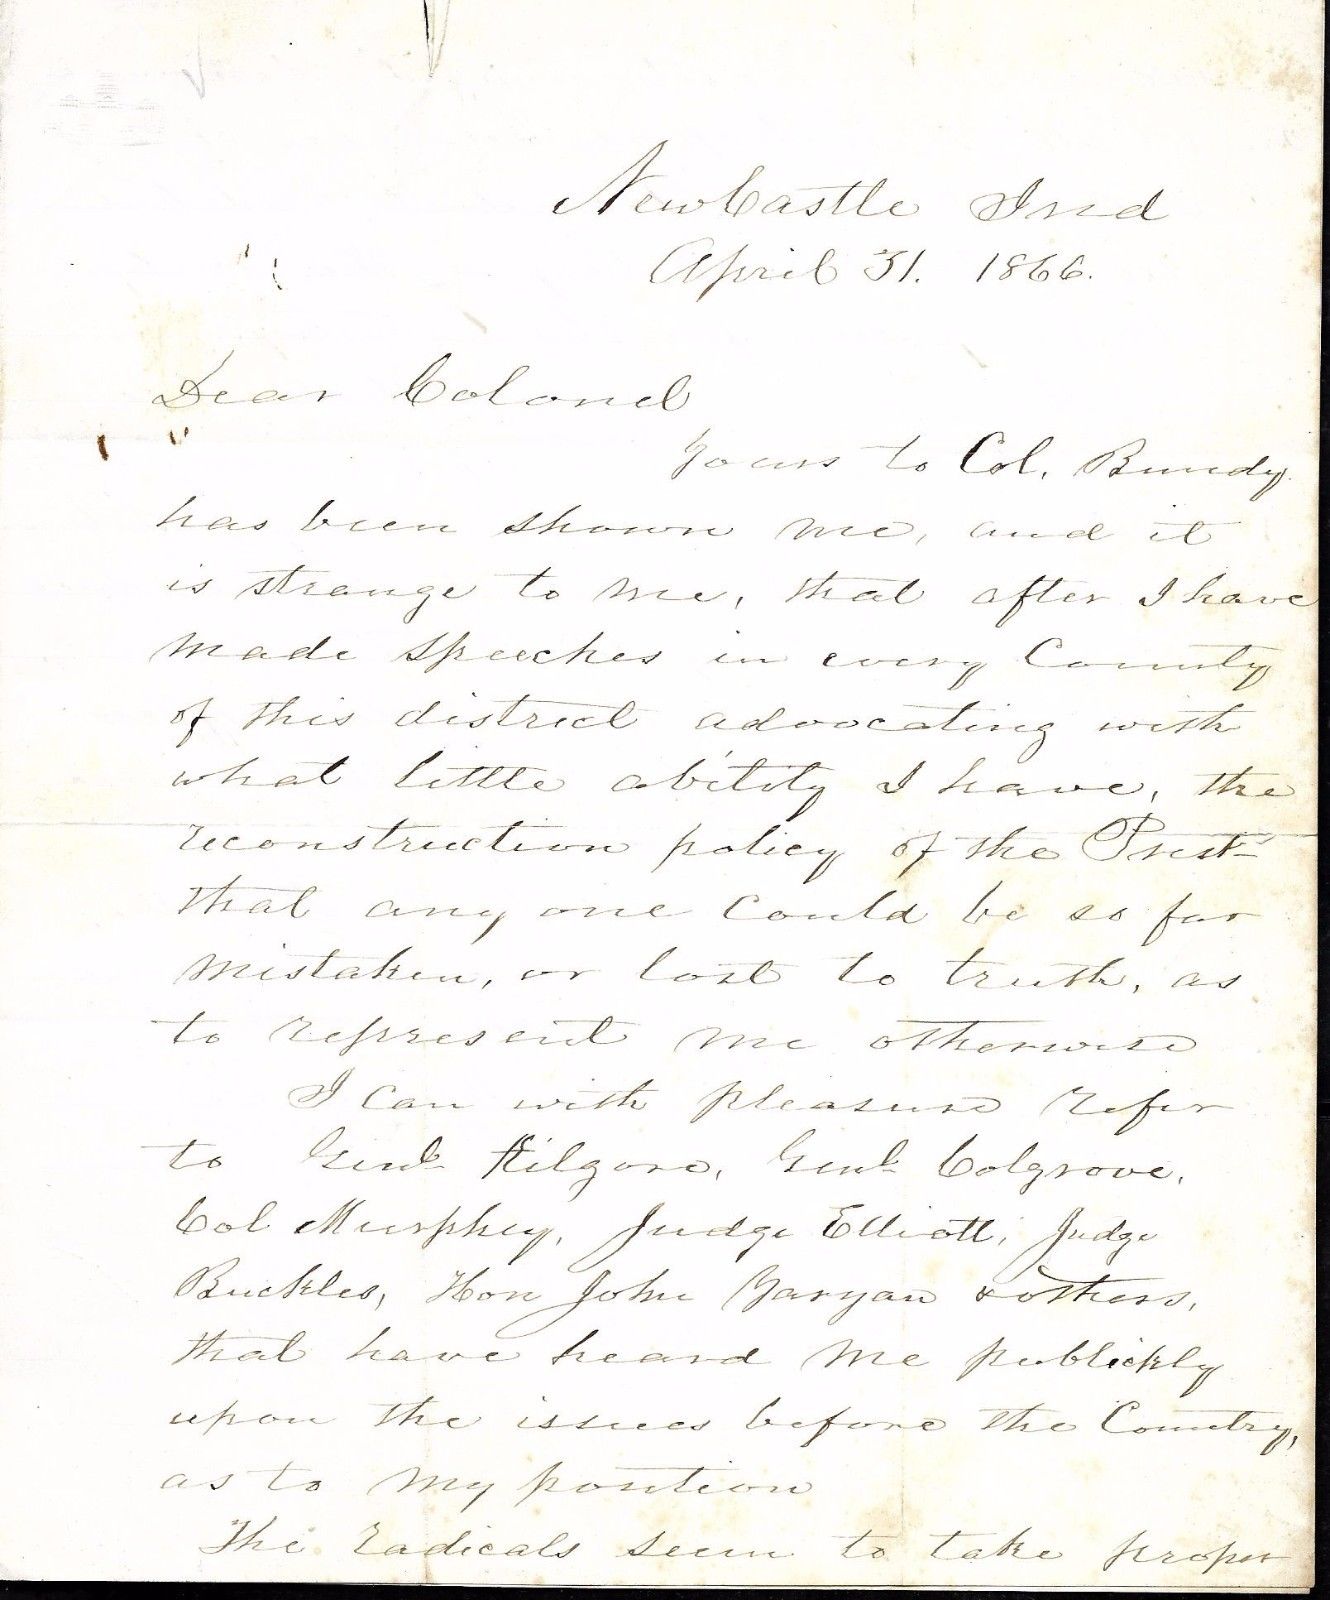 NewCastle Ind
April 31. 1866.
Dear Colonel
Yours to Col. Bundy
has been shown me, and it
is strange to me, that after I have
made speeches in every County
of this district advocating with
what little ability I have, the
reconstruction policy of the Prest
that any one could be so far
mistaken, or lost to truth, as
to represent me otherwise
I can with pleasure refer
to Genl Kilgore, Genl Colgrove,
Col Murphey, Judge Elliott, Judge
Buckles, Hon John Yaryan & others,
that have heard me publickly
upon the issues before the Country,
as to my position
The radicals seem to take proper